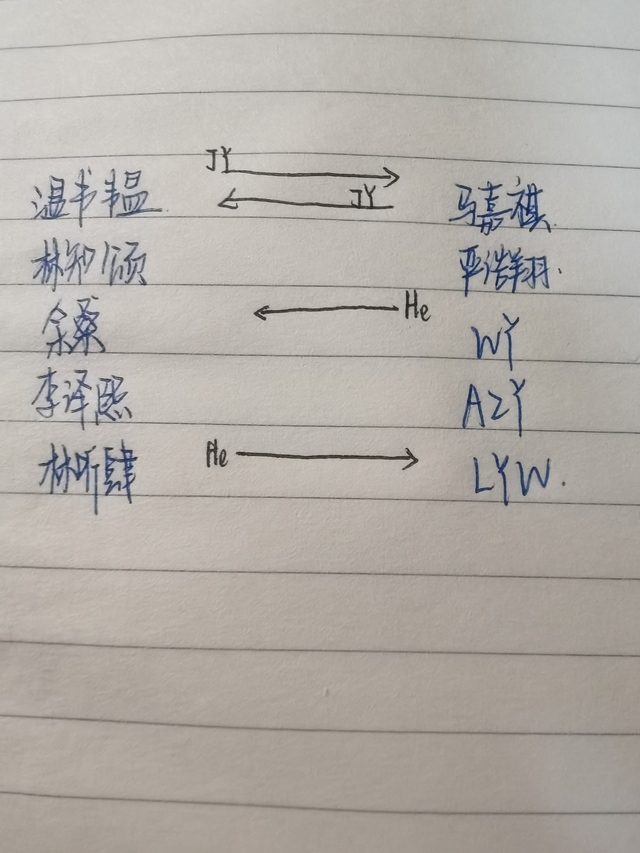 JY
JY
温书韫 马嘉祺
林知颂 严浩翔.
余桑 He
WY
李译熙 AZY
林听肆 He LYW.